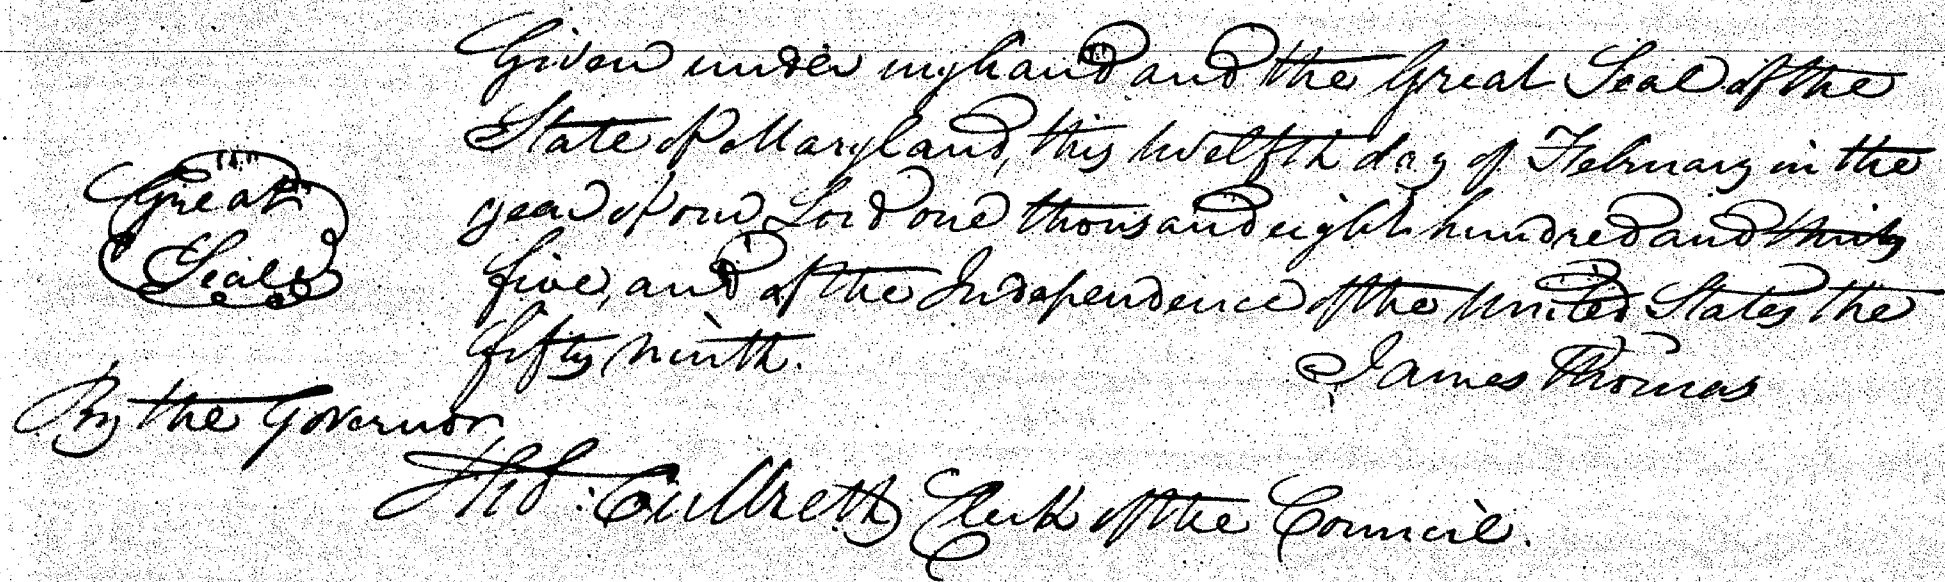 Given under my hand and the Great Seal of the
State of Maryland, this twelfth day of February in the
year of our Lord one thousand eight hundred and thirty
five, and of the Independence of the United States the
fifty ninth.
Great
Seal
James Thomas
By the Governor
Tho?: Culbreth Clerk of the Council.